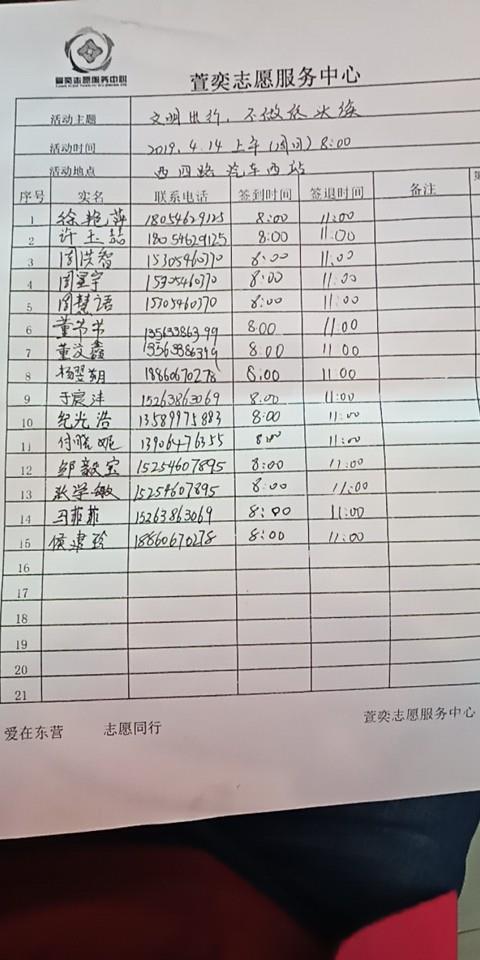 萱奕志愿服务中心
萱奕志愿服务中心
活动主题 文明出行,不做低头族
活动时间 2019.4.14 上午(周日)8:00
活动地点 西四路汽车西站
序号 实名 联系电话 签到时间 签退时间 备注
1 徐艳萍 18054629125 8:00 11:00
2 许玉喆 18054629125 8:00 11:00
3 周洪智 15305460770 8:00 11:00
4 周星宇 15305460770 8:00 11:00
5 周慧语 15705460770 8:00 11:00
6 董书书 13563386399 8:00 11:00
7 董文鑫 8:00 11:00
8 杨翌朔 18860670278 8:00 11:00
9 于宸沣 15263863069 8:00 11:00
10 纪光浩 13589975883 8:00 11:00
11 付晓妮 13906476355 8:00 11:00
12 邹毅宝 15254607895 8:00 11:00
13 张学敏 15254607895 8:00 11:00
14 马菲菲 15263863069 8:00 11:00
15 侯建玲 18860670278 8:00 11:00
16
17
18
19
20
21
爱在东营 志愿同行 萱奕志愿服务中心